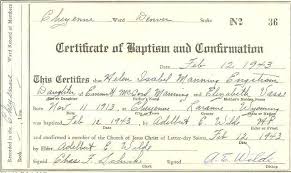 Cheyenne Ward Denver Stake No 36
Certificate of Baptism and Confirmation
Date Feb 12 1943
This Certifies that Helen Isabel Manning Engstrom
Daughter of Emmett McCord Manning and Elizabeth Vass
Son or Daughter Father's Name Mother's Maiden Name
born Nov 11 1913 in Cheyenne Laramie Wyoming
was baptized Feb 12 1943 by Adelbert E Wilde
and confirmed a member of the Church of Jesus Christ of Latter-day Saints, Feb 12 1943
by Elder Adelbert E Wilde
Signed Chas F A. E. Wilde
Recorded in the Cheyenne Ward Record of Members